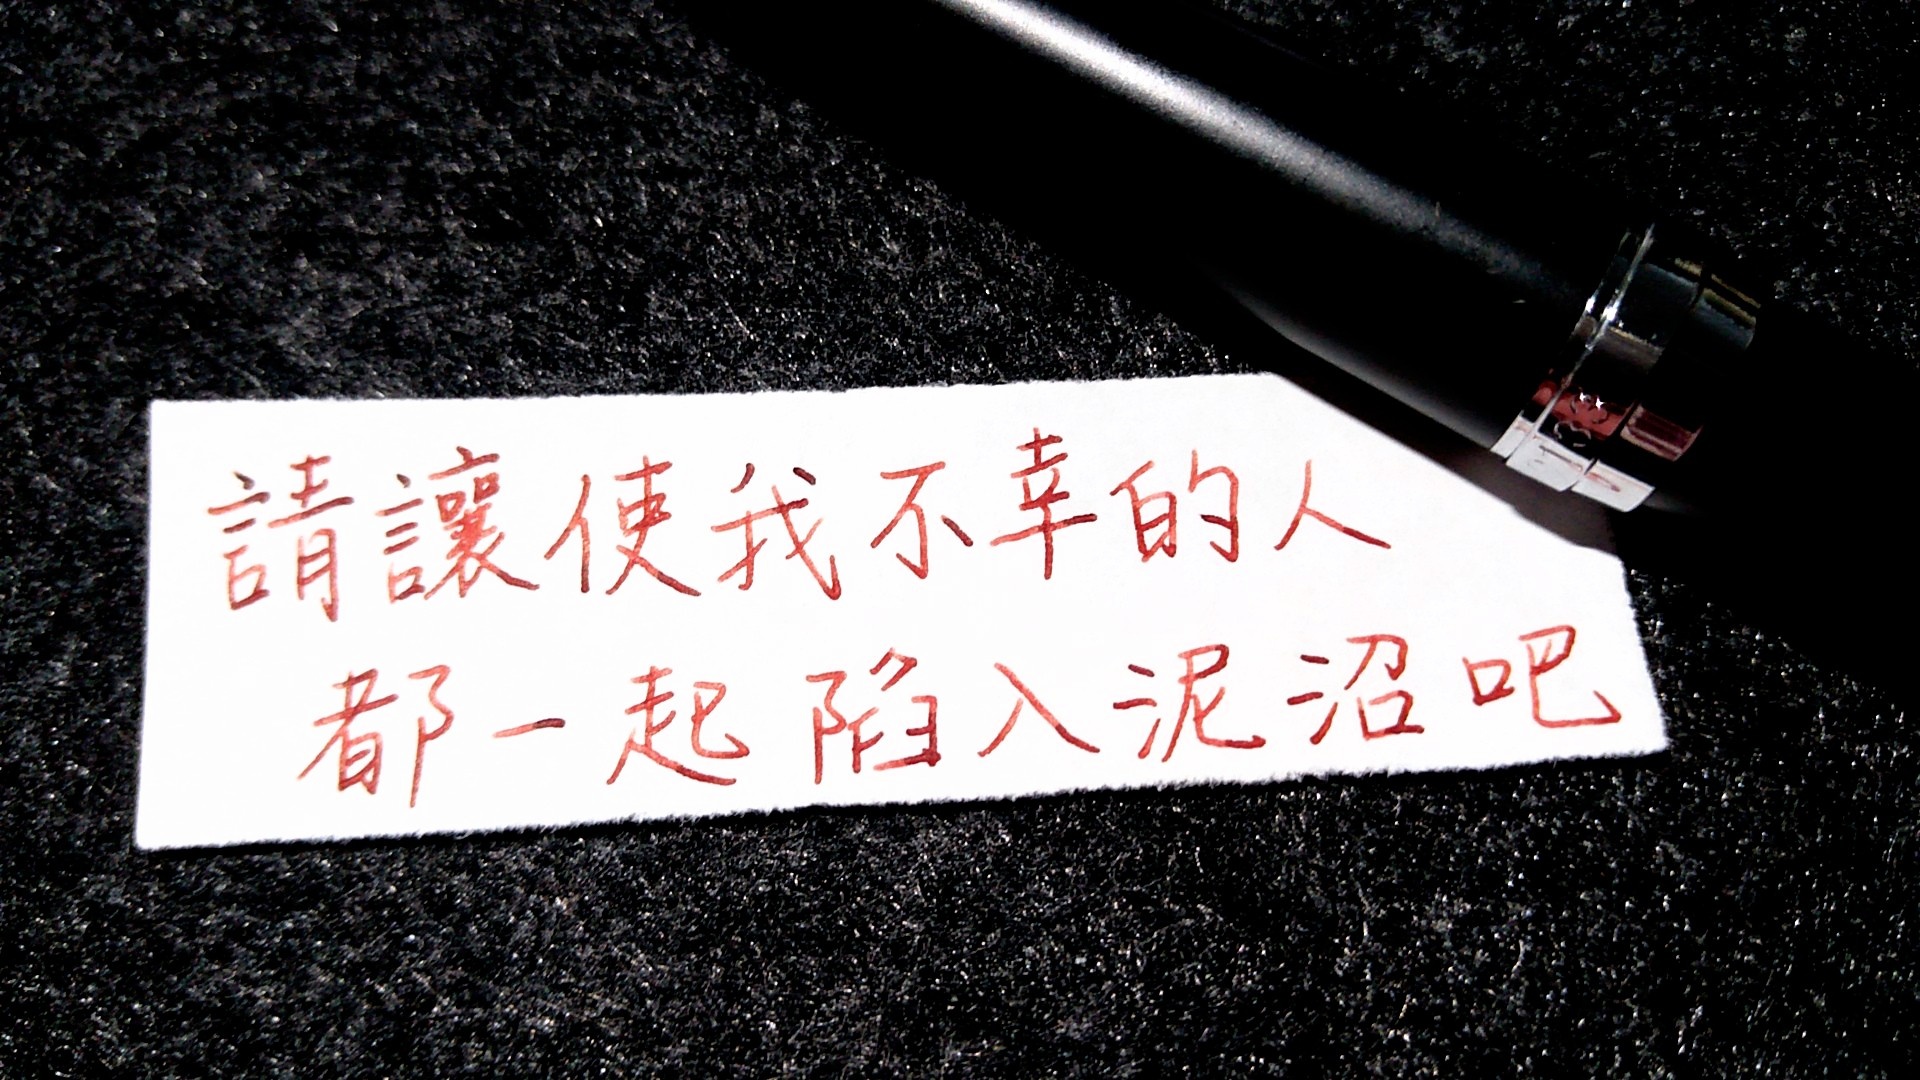 請讓使我不幸的人
都一起陷入泥沼吧